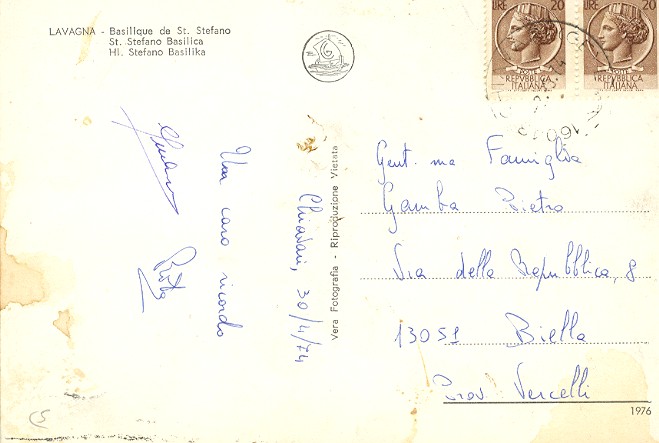 LAVAGNA - Basilique de St. Stefano
St. Stefano Basilica
Hl. Stefano Basilika
LIRE 20
POSTE
REPVBBLICA
ITALIANA
20
POSTE
REPVBBLICA
ITALIANA
16043
Chiavari, 30/4/74
Un caro ricordo
Rita
Vera Fotografia - Riproduzione Vietata
Gent.ma Famiglia
Gamba Pietro
Via della Repubblica, 8
13051 Biella
Prov Vercelli
1976